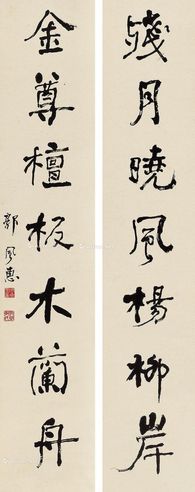 殘月曉風楊柳岸
金尊檀板木蘭舟
郭風惠